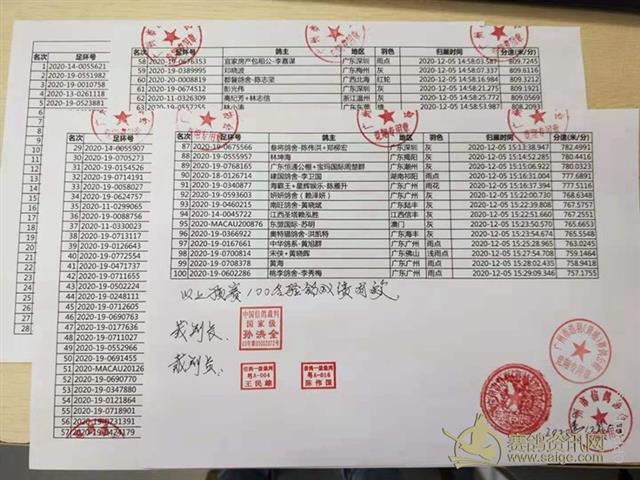 足环号
1 2020-14-0055621
2 2020-19-0551982
3 2020-19-0010758
4 2013-19-0261118
5 2020-19-0523881
28
名次 足环号 鸽主 地区 羽色 归巢时间 分速(米/分)
58 2020-19-0676353 宜家房产包租公-李嘉谋 广东深圳 雨点 2020-12-05 14:58:03.587 809.7245
59 2020-19-0389995 邓晓波 广东梅州 灰 2020-12-05 14:58:07.337 809.6216
60 2020-20-0008819 都督鸽舍-陈志坚 广西北海 红轮 2020-12-05 14:58:
61 2020-19-0674512 彭光伟 广东深圳 灰 2020-12-05 14:58:21.275 809.
62 2020-19-0263109 高纪芳+林志信 浙江温州 灰 2020-12-05 14:58:28.915 809.
63 2020-19-0557755 林小涛
足环号
29 2020-14-0055907
30 2020-19-0705273
31 2020-19-0248181
32 2020-19-0714191
33 2020-19-0058027
34 2020-19-0007256
35 2020-11-0299065
36 2020-19-0088756
37 2020-11-0330023
38 2020-19-0713117
39 2020-19-0126643
40 2020-19-0772554
41 2020-19-0772067
42 2020-19-0711655
43 2020-19-0502244
44 2020-19-0248111
45 2020-19-0712605
46 2020-19-0690763
47 2020-19-0177636
48 2020-19-0711307
49 2020-19-0552966
50 2020-19-0691455
51 2020-MACAU20126
52 2020-19-0690770
53 2020-19-0347880
54 2020-19-0121864
55 2020-19-0718901
56 2020-19-0731391
57 2020-19-0424179
名次 足环号 鸽主 地区 羽色 归巢时间 分速(米/分)
87 2020-19-0675566 叁将鸽舍-陈伟洪+郑柳宏 广东深圳 灰 2020-12-05 15:13:38.947 782.4991
88 2020-19-0711533 林坤海 广东揭阳 灰 2020-12-05 15:14:52.285 780.4416
89 2020-19-0768165 广东恒通公棚+宝玛国际周楚群 广东汕尾 灰 2020-12-05 15:15:
90 2020-18-0120514 建国鸽舍-李卫国 湖南祁阳 雨点 2020-12-05 15:16:11.
91 2020-19-0340877 海霸王+星辉娱乐-陈雁升 广东广州 雨花 2020-12-05 15:16:37.334 777.5116
92 2020-19-0593059 妍妍鸽舍（赖泽妍） 广东广州 灰 2020-12-05 15:22:00.730 768.6348
93 2020-19-0460215 南旺鸽舍-黄晓斌 广东陆丰 灰 2020-12-05 15:22:51.510 767.2561
94 2020-14-0045722 江西圣塔赖泓胜 江西信丰 灰 2020-12-05 15:22:51.660 767.2551
95 2020-MACAU200876 东盟国际-苏明 澳门 灰 2020-12-05 15:22:
96 2020-19-0366661 奥特猫鸽舍-洪凯特 广东海丰 灰 2020-12-05 15:24:
97 2020-19-0167661 中华鸽系-黄旭群 广东广州 雨点 2020-12-05 15:25:28.965 763.0245
98 2020-19-0700848 宋侠+黄晓晖 广东佛山 浅雨点 2020-12-05 15:25:55.755 762.3015
99 2020-19-0708378 黄海 广东广州 雨点 2020-12-05 15:28:02.433 758.9418
100 2020-19-0602286 桃李鸽舍-李秀梅 广东广州 灰 2020-12-05 15:29:09.346 757.1755
以上预赛100名经验确认成绩有效
裁判长：
中国信鸽裁判
国家级
孙洪全
裁判员：
信鸽一级裁判
粤A-004
王民雄
信鸽一级裁判
粤A-016
陈伟国
赛鸽资讯网
www.saige.com